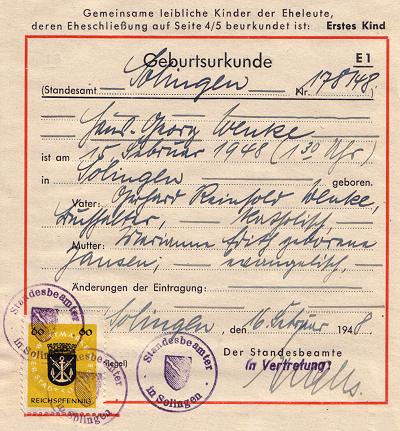 Gemeinsame leibliche Kinder der Eheleute,
deren Eheschließung auf Seite 4/5 beurkundet ist: Erstes Kind
Geburtsurkunde E 1
(Standesamt Solingen Nr. 178/48)
Hans-Georg Wenke
ist am 15. Februar 1948 (1.30 Uhr)
in Solingen geboren.
Vater: Gerhard Reinhold Wenke,
Buchhalter, katholisch,
Mutter: Marianne Edith geborene
Jansen, evangelisch,
Änderungen der Eintragung:
Solingen, den 16. Februar 1948
(Siegel) Der Standesbeamte
In Vertretung:
Standesbeamter
in Solingen
60 60
REICHSPFENNIG
Standesbeamter
in Solingen